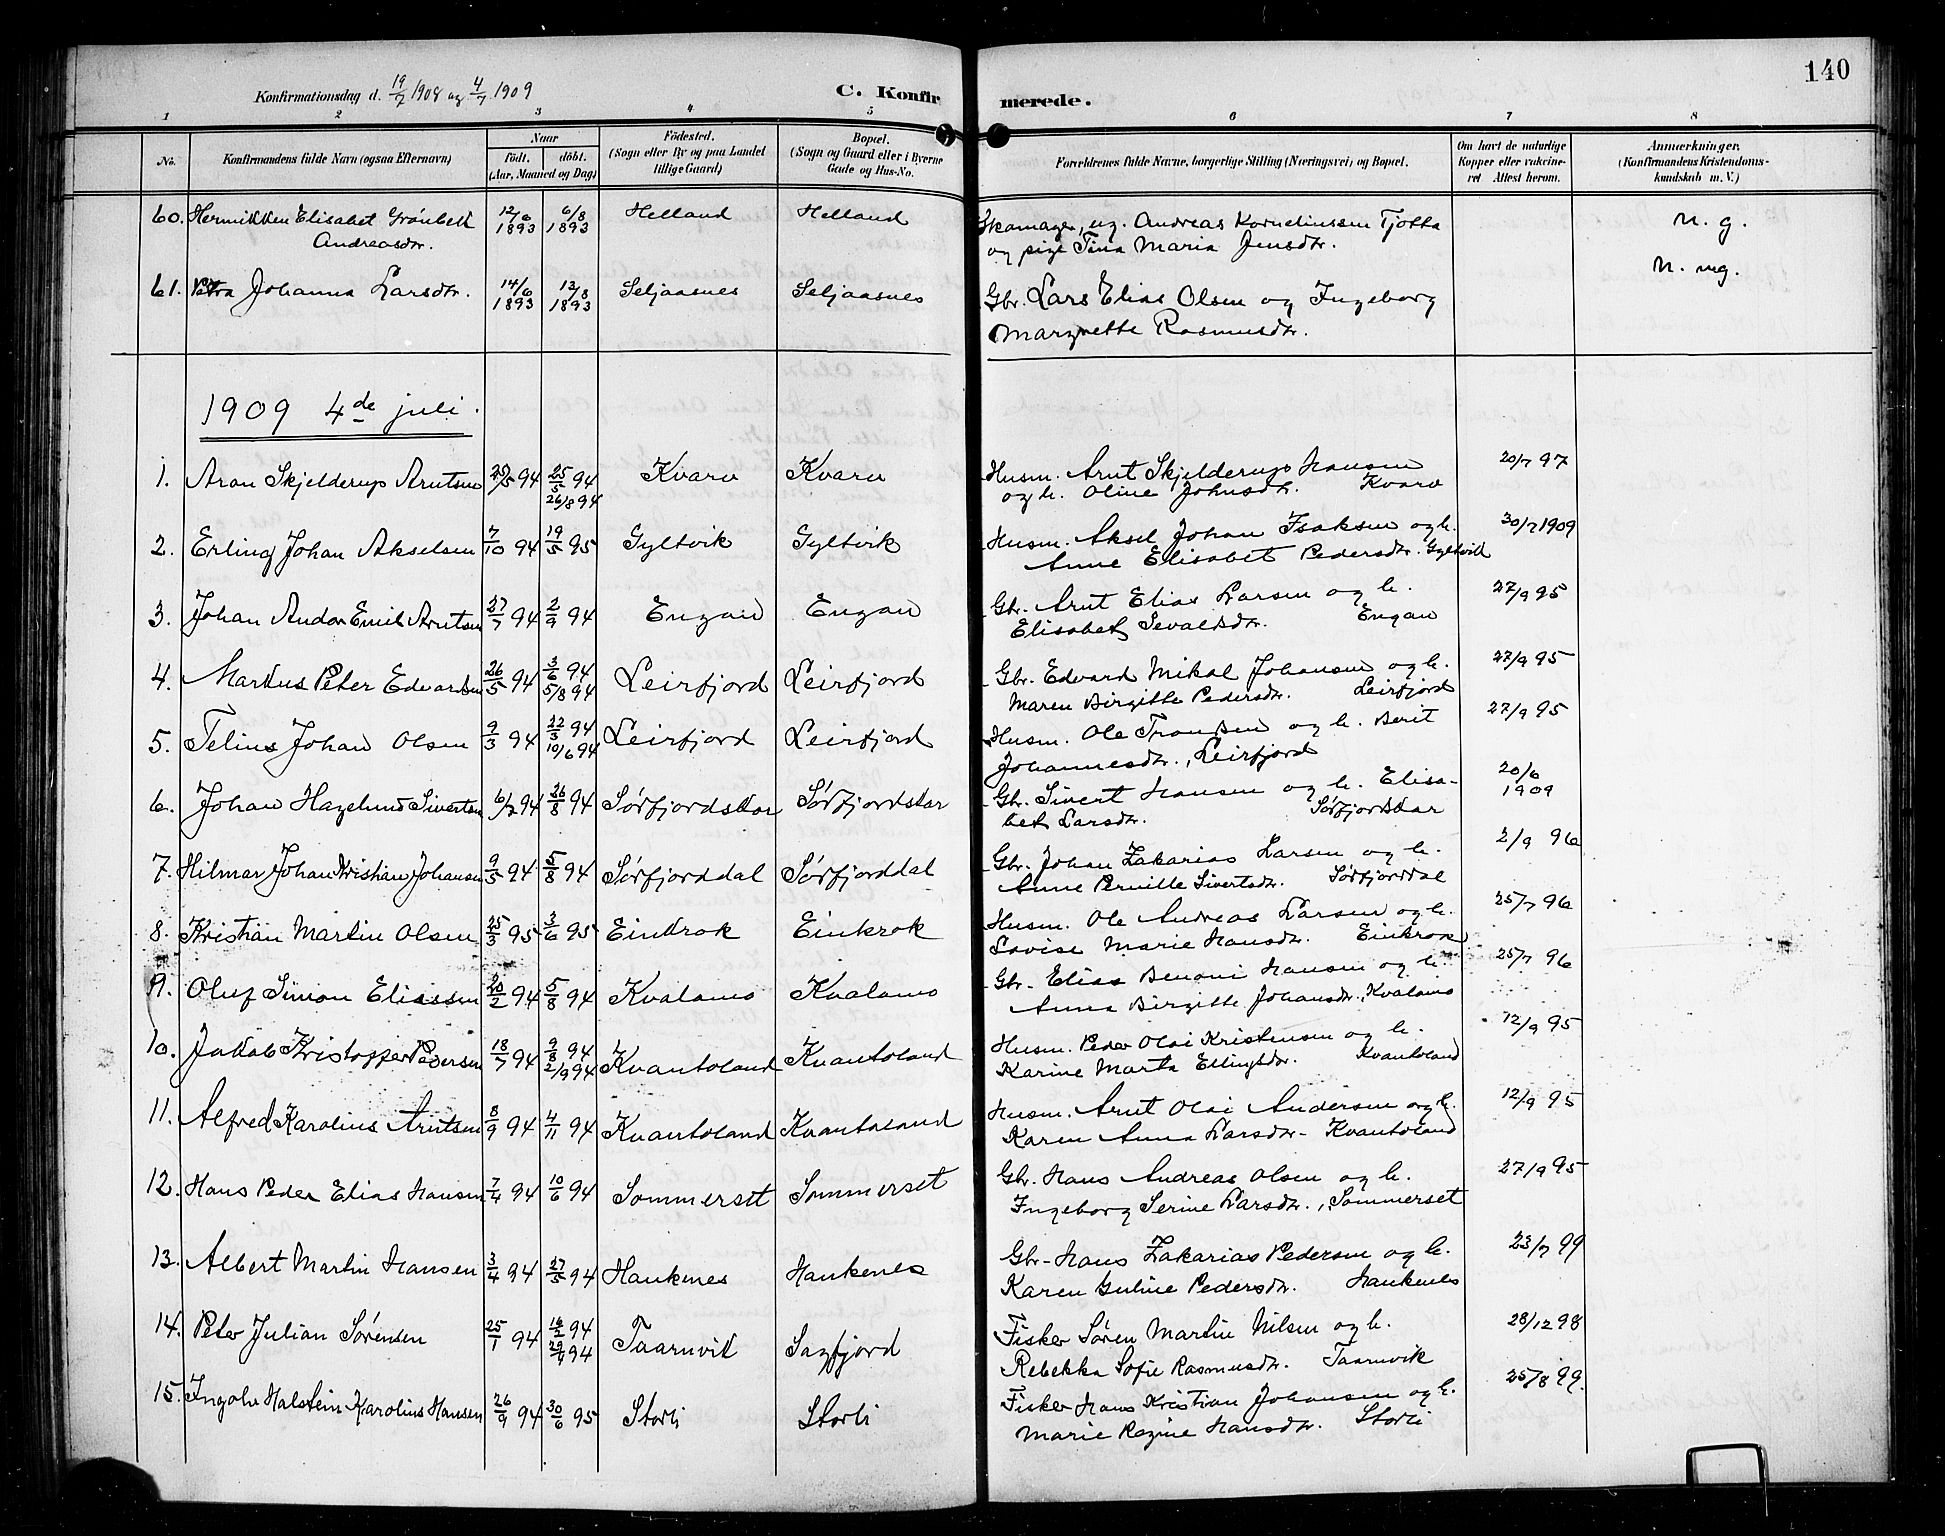 140
Konfirmationsdag d. 19/7 1908 og 4/7 1909
C. Konfirmerede.
1 2 3 4 5 6 7 8
No.
Konfirmandens fulde Navn (ogsaa Efternavn)
Naar
födt. döbt.
(Aar, Maaned og Dag)
Födested.
(Sogn eller By og paa Landet
tillige Gaard)
Bopæl.
(Sogn og Gaard eller i Byerne
Gade og Hus-No.
Forældrenes fulde Navne, borgerlige Stilling (Næringsvei) og Bopæl.
Om havt de naturlige
Kopper eller vakcine-
ret Attest herom.
Anmærkninger.
(Konfirmandens Kristendoms-
kundskab m. V.)
60. Hermikken Elisabet Grönbekk 12/6 1893 6/8 1893 Helland Helland Skomager, ug. Andreas Kornelinssen Tjotta N. g.
Andreasdtr. og pige Tina Maria Jensdtr.
61. Petra Johanna Larsdtr. 14/6 1893 13/8 1893 Seljaasnes Seljaasnes Gbr. Lars Elias Olsen og Ingeborg N. mg.
Margrette Rasmusdtr.
1909 4de juli.
1. Aron Skjelderup Arntsen 94 25/5 94 Kvarv Kvarv Husm. Arnt Skjelderup Hansen 20/7 97
26/8 94 og h. Oline Johnsdtr. Kvarv
2. Erling Johan Akselsen 7/10 94 19/5 95 Gyltvik Gyltvik Husm. Aksel Johan Isaksen og h. 30/7 1909
Anne Elisabet Pedersdtr. Gyltvik
3. Johan Andor Emil Arntsen 27/7 94 2/9 94 Engan Engan Gbr. Arnt Elias Larsen og h. 27/9 95
Elisabet Sevaldsdtr. Engan
4. Markus Peter Edvardsen 26/5 94 3/6 94 Leirfjord Leirfjord Gbr. Edvard Mikal Johansen og h. 27/9 95
5/8 94 Maren Birgitte Pedersdtr. Leirfjord
5. Telius Johan Olsen 9/3 94 22/3 94 Leirfjord Leirfjord Husm. Ole Trondsen og h. Berit 27/9 95
10/6 94 Johannesdtr., Leirfjord
6. Johan Hagelund Sivertsen 6/7 94 26/8 94 Sørfjordskar Sørfjordskar Gbr. Sivert Hansen og h. Elisa- 20/6 1909
bet Larsdtr. Sørfjordskar
7. Hilmar Johan Kristian Johansen 9/5 94 5/8 94 Sørfjorddal Sørfjorddal Gbr. Johan Zakarias Larsen og h. 2/9 96
Anne Pernille Sivertsdtr. Sørfjorddal
8. Kristian Martin Olsen 25/3 95 3/6 95 Einkrok Einkrok Husm. Ole Andreas Larsen og h. 25/7 96
Lovise Marie Hansdtr. Einkrok
9. Oluf Simon Eliassen 20/2 94 5/8 94 Kvalamo Kvalamo Gbr. Elias Benoni Hansen og h. 25/7 96
Anna Birgitte Johansdtr., Kvalamo
10. Jakob Kristoffer Pedersen 18/7 94 9/8 94 Kvantoland Kvantoland Husm. Peder Olai Kristensen og h. 12/9 95
2/9 94 Karine Marta Ellingsdtr. Kvantoland
11. Alfred Karolius Arntsen 8/9 94 4/11 94 Kvantoland Kvantoland Husm. Arnt Olai Andersen og h. 12/9 95
Karen Anna Larsdtr - Kvantoland
12. Hans Peder Elias Hansen 7/4 94 10/6 94 Sommerset Sommerset Gbr. Hans Andreas Olsen og h. 27/9 95
Ingeborg Serine Larsdtr., Sommerset
13. Albert Martin Hansen 3/4 94 27/5 94 Haukenes Haukenes Gbr - Hans Zakarias Pedersen og h. 23/7 99
Karen Guline Pedersdtr. Haukenes
14. Peter Julian Sørensen 25/1 94 16/2 94 Taarnvik Sagfjord Fisker Søren Martin Nilsen og h. 28/12 98
29/4 94 Rebekka Sofie Rasmusdtr. Taarnvik
15. Ingolv Halstein Karolius Hansen 26/9 94 30/6 95 Storli Storli Fisker Hans Kristian Johansen og h. 25/8 99.
Marie Regine Hansdtr. Storli